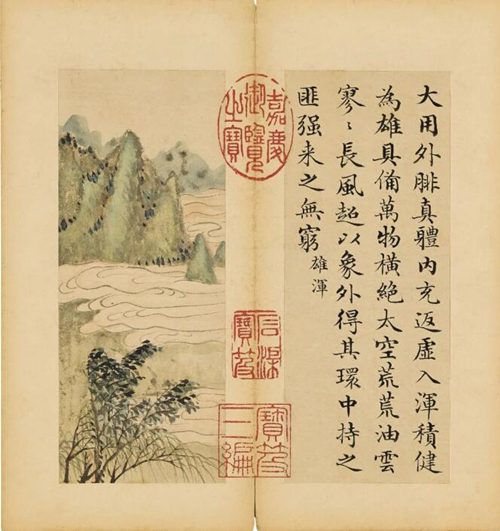 大用外腓真體內充返虛入渾積健
為雄具備萬物橫絕太空荒荒油雲
寥〻長風超以象外得其環中持之
匪强来之無窮
雄渾
嘉慶
御覽
之寶
石渠
寶笈
寶笈
三編